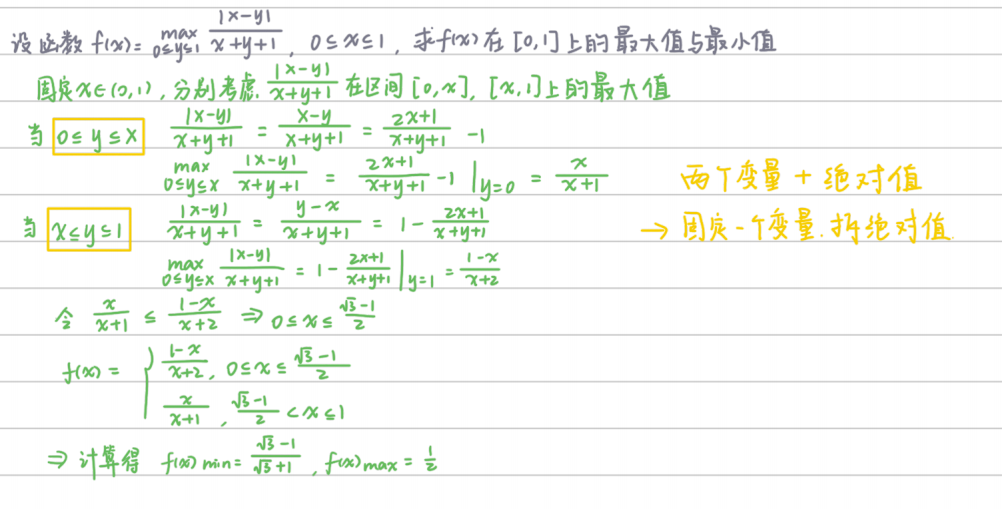 设函数 f(x)= max_{0≤y≤1} |x-y|/(x+y+1), 0≤x≤1, 求f(x)在[0,1]上的最大值与最小值
固定x∈(0,1), 分别考虑 |x-y|/(x+y+1) 在区间[0,x], [x,1]上的最大值
当 0≤y≤x |x-y|/(x+y+1) = (x-y)/(x+y+1) = (2x+1)/(x+y+1) -1
max_{0≤y≤x} |x-y|/(x+y+1) = (2x+1)/(x+y+1) -1 |_{y=0} = x/(x+1)
两个变量+绝对值
当 x≤y≤1 |x-y|/(x+y+1) = (y-x)/(x+y+1) = 1- (2x+1)/(x+y+1)
→ 固定一个变量.拆绝对值.
max_{0≤y≤x} |x-y|/(x+y+1) = 1- (2x+1)/(x+y+1) |_{y=1} = (1-x)/(x+2)
令 x/(x+1) ≤ (1-x)/(x+2) ⇒ 0≤x≤ (√3-1)/2
f(x) = { (1-x)/(x+2), 0≤x≤ (√3-1)/2
x/(x+1), (√3-1)/2 <x≤1
⇒ 计算得 f(x)min= (√3-1)/(√3+1), f(x)max= 1/2